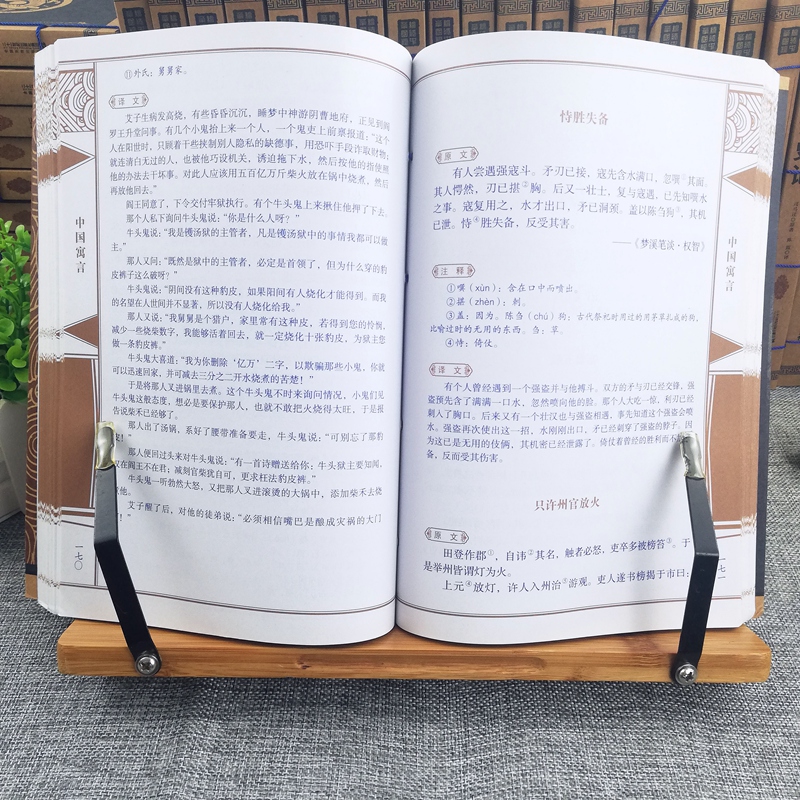 ⑪外氏：舅舅家。
译文
艾子生病发高烧，有些昏昏沉沉，睡梦中神游阴曹地府，正见到阎
罗王升堂问事。有几个小鬼抬上来一个人，一个鬼吏上前禀报道：“这个
人在阳世时，只顾着干些挟制别人隐私的缺德事，用恐吓手段诈取财物；
就连清白无过的人，也被他巧设机关，诱迫拖下水，然后按他的指使照
他的办法去干坏事。对此人应该用五百亿万斤柴火放在锅中烧煮，然后
再放他回去。”
阎王同意了，下令交付牢狱执行。有个牛头鬼上来揪住他押了下去。
那个人私下询问牛头鬼说：“你是什么人呀？”
牛头鬼说：“我是镬汤狱的主管者，凡是镬汤狱中的事情我都可以做
主。”
那人又问：“既然是狱中的主管者，必定是首领了，但为什么穿的豹
皮裤子这么破呀？”
牛头鬼说：“阴间没有这种豹皮，如果阳间有人烧化才能得到。而我
的名望在人世间并不显著，所以没有人烧化给我。”
那人又说：“我舅舅是个猎户，家里常有这种皮，若得到您的怜悯，
减少一些烧柴数字，我能够活着回去，就一定烧化十张豹皮，为狱主您
做一条豹皮裤。”
牛头鬼大喜道：“我为你删除‘亿万’二字，以欺骗那些小鬼，你就
可以迅速回家，并可减去三分之二开水烧煮的苦楚！”
于是将那人叉进锅里去煮。这个牛头鬼不时来询问情况，小鬼们见
牛头鬼这般态度，想必是要保护那人，也就不敢把火烧得太旺，于是报
告说柴禾已经够了。
那人出了汤锅，系好了腰带准备要走，牛头鬼说：“可别忘了那豹
！”
那人便回过头来对牛头鬼说：“有一首诗赠送给你：牛头狱主要知闻，
权在阎王不在君；减刻官柴犹自可，更求枉法豹皮裤。”
牛头鬼一听勃然大怒，又把那人叉进滚烫的大锅中，添加柴禾去烧
他。
艾子醒了后，对他的徒弟说：“必须相信嘴巴是酿成灾祸的大门
！”
中国寓言
一七〇
恃胜失备
原文
有人尝遇强寇斗。矛刃已接，寇先含水满口，忽噀①其面。
其人愕然，刃已揕②胸。后又一壮士，复与寇遇，已先知噀水
之事。寇复用之，水才出口，矛已洞颈。盖以陈刍狗③，其机
已泄。恃④胜失备，反受其害。
——《梦溪笔谈·权智》
注释
①噀（xùn）：含在口中而喷出。
②揕（zhèn）：刺。
③盖：因为。陈刍（chú）狗：古代祭祀时用过的用茅草扎成的狗，
比喻过时的无用的东西。刍：草。
④恃：倚仗。
译文
有个人曾经遇到一个强盗并与他搏斗。双方的矛与刃已经交锋，强
盗预先含了满满一口水，忽然喷向他的脸。那个人大吃一惊，利刃已经
刺入了胸口。后来又有一个壮汉也与强盗相遇，事先知道这个强盗会喷
水。强盗再次使出这一招，水刚刚出口，矛已经刺穿了强盗的脖子。因
为这已是无用的伎俩，其机密已经泄露了。倚仗着曾经的胜利而不
备，反而受其伤害。
只许州官放火
原文
田登作郡①，自讳②其名，触者必怒，吏卒多被榜笞③。于
是举州皆谓灯为火。
上元④放灯，许人入州治⑤游观。吏人遂书榜揭于市曰：
中国寓言
七一